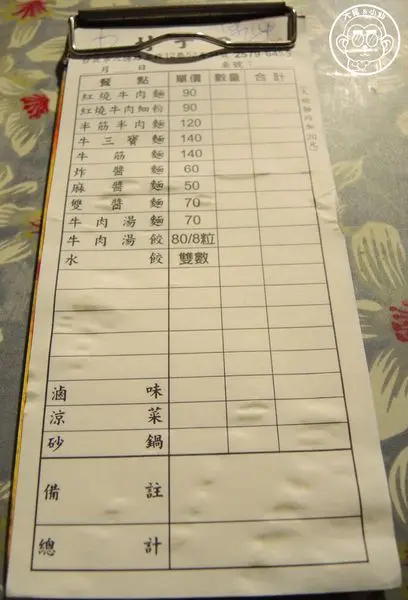 月 日
餐點 單價 數量 合計
紅燒牛肉麵 90
紅燒牛肉細粉 90
半筋半肉麵 120
牛三寶麵 140
牛筋麵 140
炸醬麵 60
麻醬麵 50
雙醬麵 70
牛肉湯麵 70
牛肉湯餃 80/8粒
水餃 雙數
滷味
涼菜
砂鍋
備註
總計